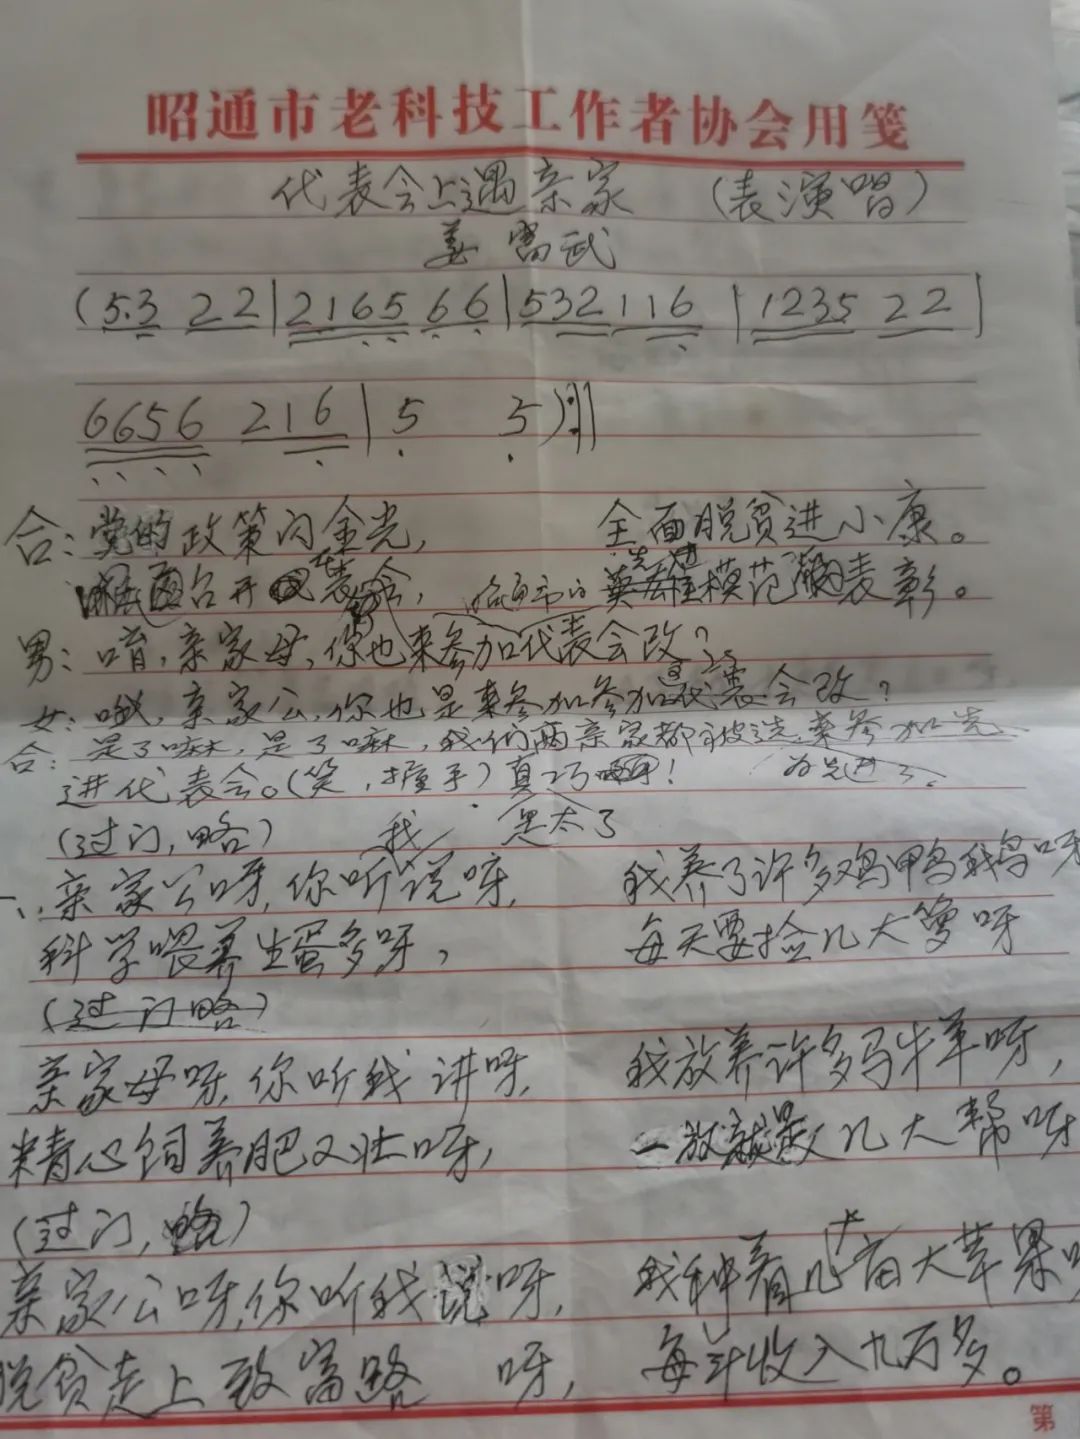 昭通市老科技工作者协会用笺
代表会上遇亲家 （表演唱）
姜富武
(5.3 22|2165 66|532 116|1235 22|
6656 216|5 5):||
合：党的政策闪金光， 全面脱贫进小康。
召开表会， 昭通市的先进模范表彰。
男：唷，亲家母，你也来参加代表会改？
女：哦，亲家公，你也是来参加参加代表会改？
合：是了嘛，是了嘛，我们两亲家都被选来参加先
进代表会。（笑，握手）真巧！ 为先进了。
（过门，略） 我 是太了
一、亲家公呀，你听说呀， 我养了许多鸡鸭鹅呀
科学喂养生蛋多呀， 每天要捡几大箩呀
（过门略）
亲家母呀，你听我讲呀， 我放养许多马牛羊呀，
精心饲养肥又壮呀， 一放就是几大帮呀
（过门，略）
亲家公呀，你听我说呀， 我种着几十亩大苹果
脱贫走上致富路 呀， 每年收入九万多。
第